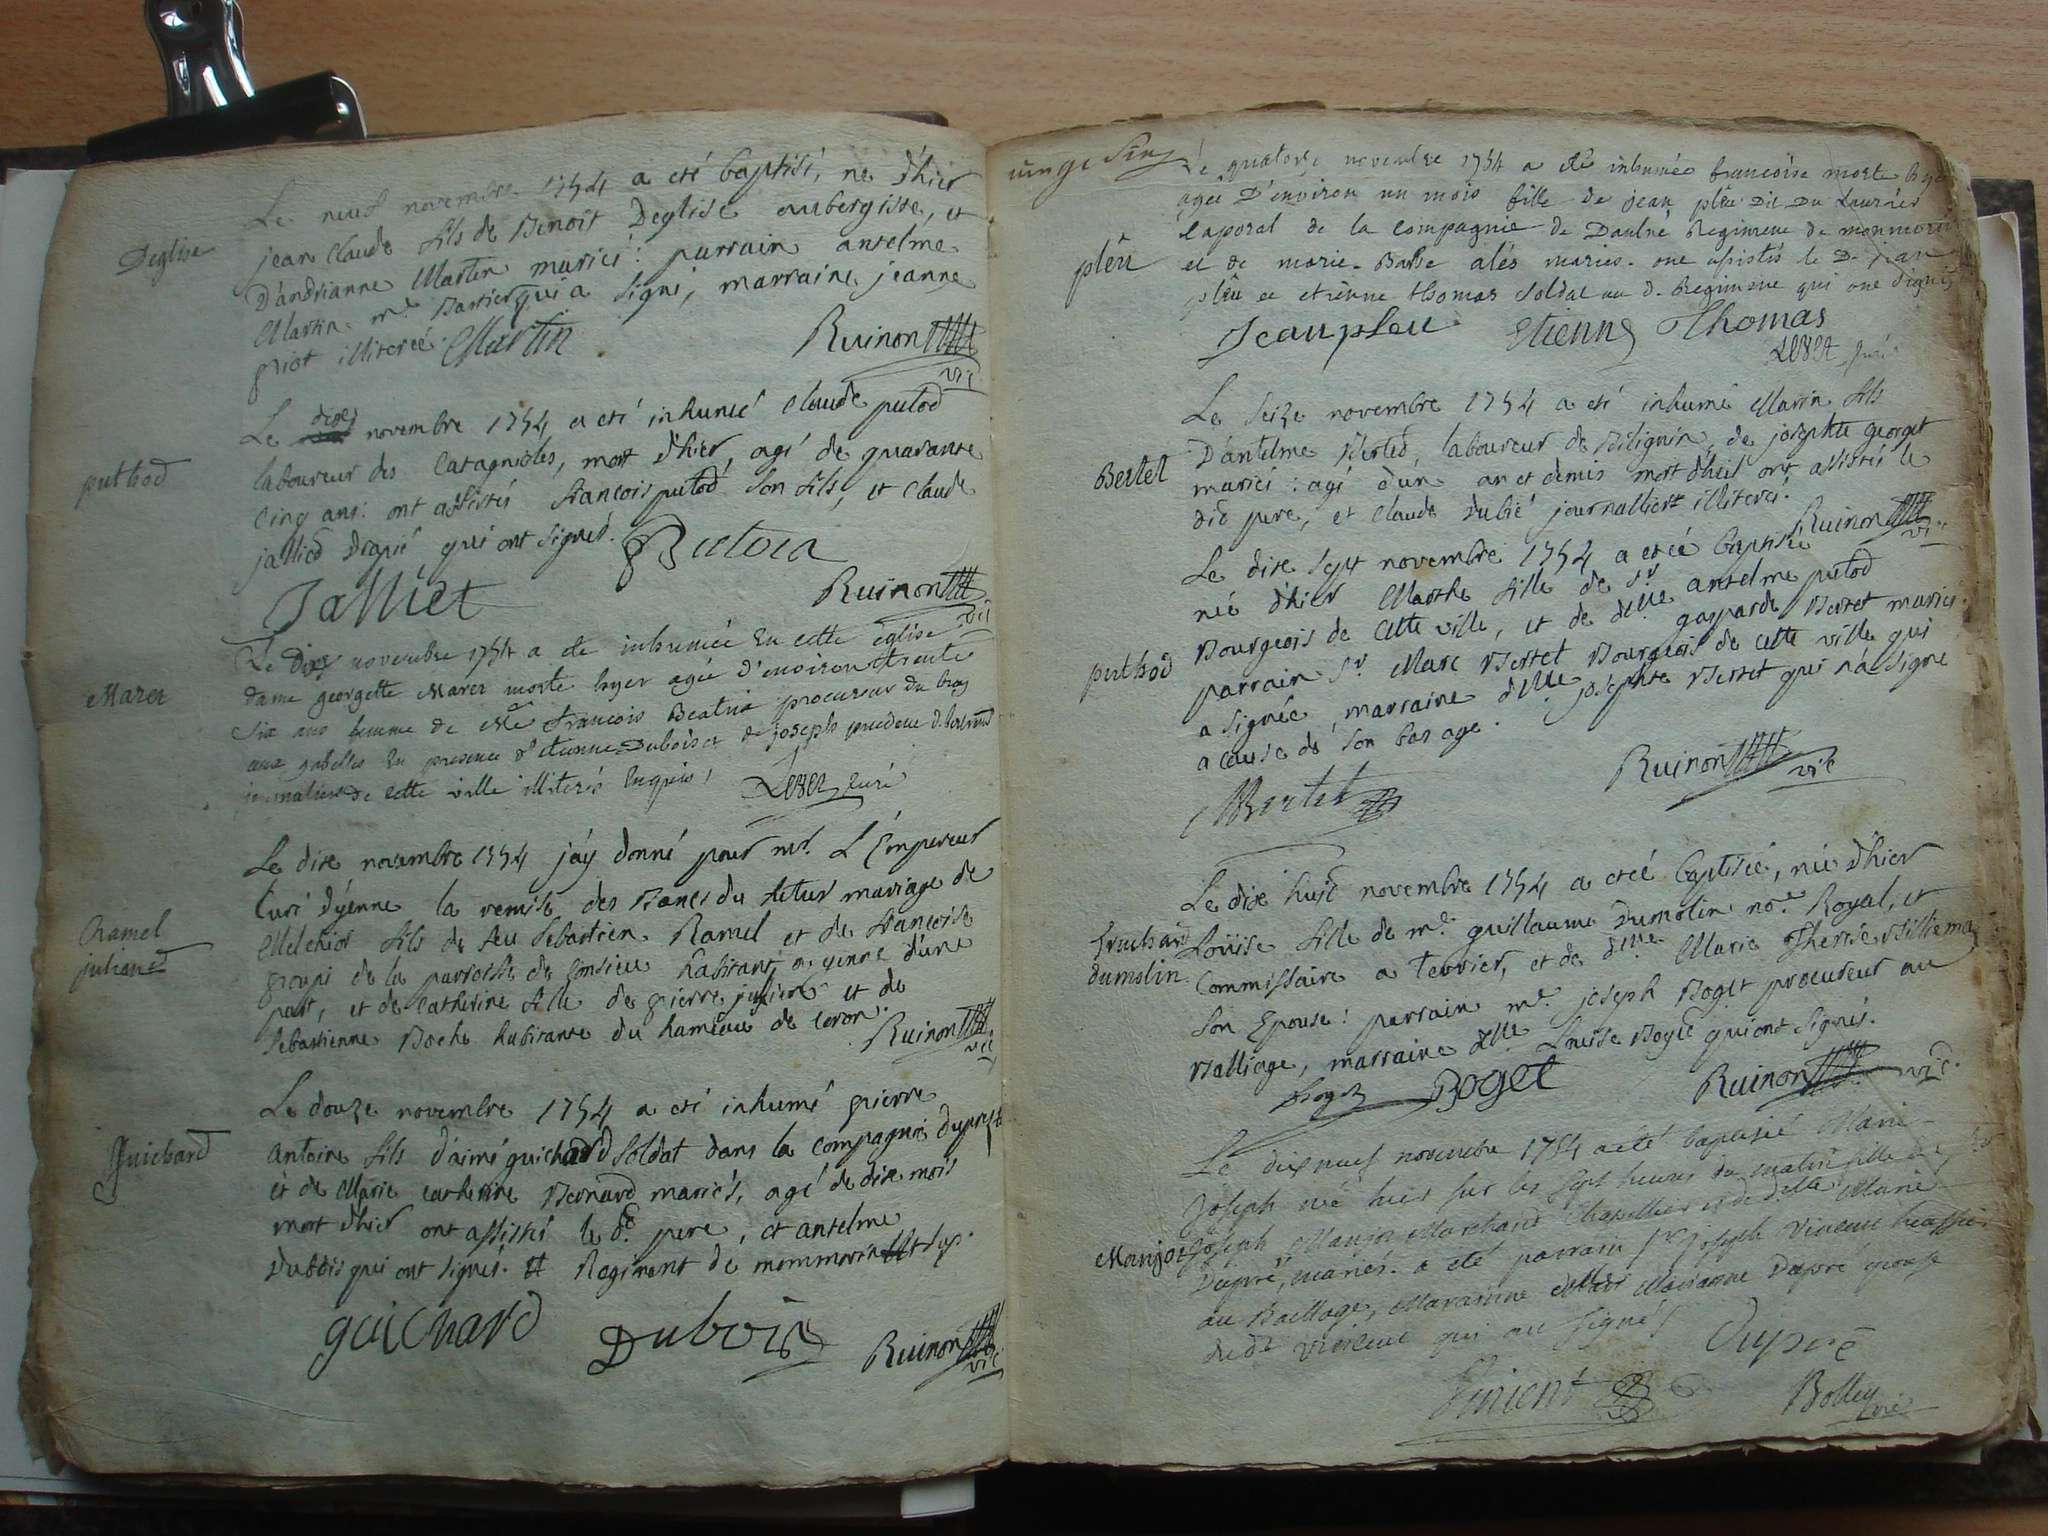 Le neuf novembre 1754 a eté baptisé, né d'hier
Deglise
jean Claude fils de Benoit Deglise aubergiste, et
D'andrianne Martin mariés: parrain antelme
Martin me Barrier qui a signé, marraine jeanne
illiterée. Martin
Ruinon
vic
Le dixe novembre 1754 a eté inhumé Claude putod
puthod
laboureur des Catagnioles, mort d'hier, agé de quarante
cinq ans: ont assistés françois putod son fils, et Claude
jalliet drapié qui ont signés.
Jalliet
Ruinon
vic
Le dixe novembre 1754 a ete inhumée en cette église
Marer
dame georgette Marer morte hyer agée d'environ trente
six ans femme de Me francois Beatrix procureur du roy
aux gabelles en presence d'etienne Dubois et de joseph
de cette ville illiterés enquis /
curé
Le dixe novembre 1754 j'ay donné pour mr. L'Empereur
Curé d'yenne la remise des Bancs du futur mariage de
Ramel
julian
Melchior fils de feu Sebastien Ramel et de françoise
de la parroisse de habitant a yenne d'une
part, et de Catherine fille de pierre et de
Sebastienne Boche habitante du hameau de Coron.
Ruinon
vic
Le douze novembre 1754 a eté inhumé pierre
guichard
antoine fils d'aimé guichard soldat dans la compagnie
et de Marie catherine Bernard mariés, agé de dixe mois
mort d'hier ont assistés le d. pere, et antelme
Dubois qui ont signés. # Regiment de monmorin
guichard
Dubois
Ruinon
vic
vingt sinq
Le quatorze novembre 1754 a eté inhumée francoise morte hyer
agée D'environ un mois fille de jean plêu dit Du Laurier
Caporal de la Compagnie de Daulné Regiment de monmorin
plêu
et de marie Basse alés mariés. ont assistés le D. jean
plêu et etienne thomas soldat au d. Regiment qui ont signés
Jean pleu
Etienne Thomas
curé
Le seize novembre 1754 a eté inhumé Marin fils
Bertet
D'antelme Berted, laboureur de Bilignin, de josephte georget
mariés: agé d'un an et demis mort d'hier ont assistés le
dit pere, et Claude Dubié journalliers illiterés.
Ruinon
vic
Le dixe sept novembre 1754 a eteé baptisée
née d'hier Marthe fille de Sr antelme putod
puthod
Bourgeois de cette ville, et de delle. gasparde Bertet mariés.
parrain Sr Marc Bertet Bourgeois de cette ville qui
a signée, marraine delle josephte Bertet qui n'a signé
a cause de son bas age.
Bertet
Ruinon
vic
Le dixe huit novembre 1754 a eteé baptiseé, née d'hier
Dumolin
Loüise fille de me. guillaume Dumolin nore. Royal, et
Commissaire a terrier, et de delle Marie Therese
son Epouse: parrain me. joseph Boget procureur au
Balliage, marraine delle Louise Boget qui ont signés.
Boget
Ruinon
vic.
Le dixneuf novembre 1754 a eté baptisé Marie
Joseph née hier sur les sept heures du matin fille de Sr
Manjot
Joseph Manjot Marchand Chapellier et de delle Marie
Dupré, mariés. a été parrain Sr Joseph Vincent huissier
au Baillage, Maraine Marianne Dupré epouse
du dt Vincent qui ont signés /
Dupré
Vincent
Bolley
vic